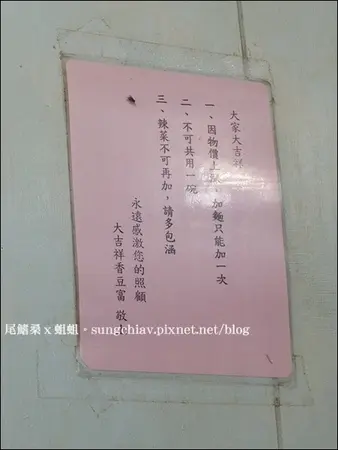 大家大吉祥
一、因物價上漲，加麵只能加一次
二、不可共用一碗
三、辣菜不可再加，請多包涵
永遠感激您的照顧
大吉祥香豆富 敬上
尾鰭桑 x 蛆蛆。sungchiav.pixnet.net/blog